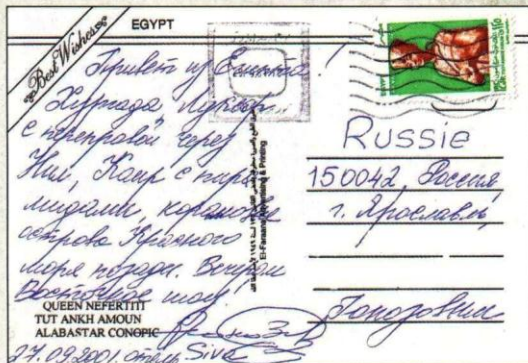 Best Wishes
EGYPT
Привет из Египта!
Хургада, Луксор
с переправой через
Нил, Каир с пира-
мидами, коралловые
острова Красного
моря позади. Вечером
Восточное шоу!
QUEEN NEFERTITI
TUT ANKH AMOUN
ALABASTAR CONOPIC
27.09.2001. отель Siva
El-Faraana Advertising & Printing
EGYPT
Russie
150042, Россия,
г. Ярославль,